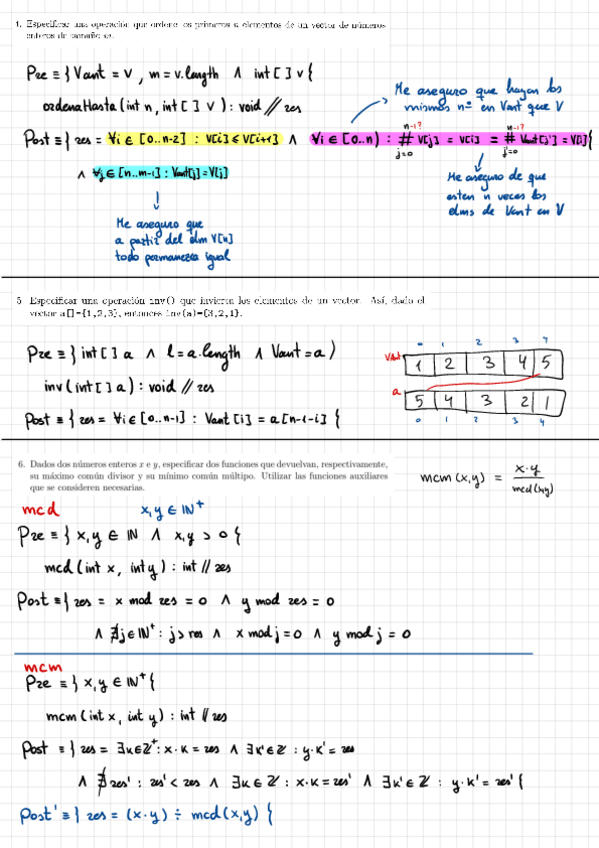 4. Especificar una operación que ordene los primeros n elementos de un vector de números
enteros de tamaño m.
Pre ≡ } Vant = v , m = v.length ∧ int [ ] v {
ordenaHasta (int n, int [ ] v) : void // res
Me aseguro que hayan los
mismos nº en Vant que V
Post ≡ } res = ∀i ∈ [0..n-2] : V[i] ≤ V[i+1] ∧ ∀i ∈ [0..n) : # V[j] = V[i] = # Vant[j'] = V[i] {
n-1? n-1?
j=0 j'=0
∧ ∀j ∈ [n..m-1] : Vant[j] = V[j]
Me aseguro de que
esten n veces los
elms de Vant en V
Me aseguro que
a partir del elm V[n]
todo permanezca igual
5. Especificar una operación inv() que invierta los elementos de un vector. Así, dado el
vector a[]={1,2,3}, entonces inv(a)={3,2,1}.
Pre ≡ } int [ ] a ∧ l = a.length ∧ Vant = a )
inv (int [ ] a) : void // res
Post ≡ { res = ∀i ∈ [0..n-1] : Vant [i] = a [n-1-i] {
0 1 2 3 4
Vant 1 2 3 4 5
a 5 4 3 2 1
0 1 2 3 4
6. Dados dos números enteros x e y, especificar dos funciones que devuelvan, respectivamente,
su máximo común divisor y su mínimo común múltiplo. Utilizar las funciones auxiliares
que se consideren necesarias.
mcm (x,y) = x·y / mcd(x,y)
mcd x,y ∈ IN⁺
Pre ≡ } x,y ∈ IN ∧ x,y > 0 {
mcd (int x, int y) : int // res
Post ≡ } res = x mod res = 0 ∧ y mod res = 0
∧ ∄j ∈ IN⁺ : j > res ∧ x mod j = 0 ∧ y mod j = 0
mcm
Pre ≡ } x,y ∈ IN⁺ {
mcm (int x, int y) : int // res
Post ≡ } res = ∃k ∈ Z⁺ : x · k = res ∧ ∃k' ∈ Z : y · k' = res
∧ ∄ res' : res' < res ∧ ∃k ∈ Z : x · k = res' ∧ ∃k' ∈ Z : y · k' = res' {
Post' ≡ } res = (x · y) ÷ mcd (x,y) {